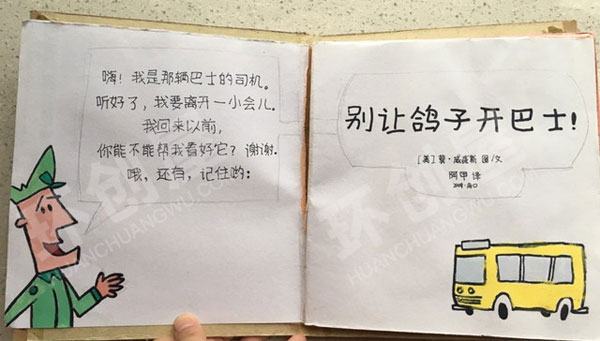 嗨！我是那辆巴士的司机。
听好了，我要离开一小会儿。
我回来以前，
你能不能帮我看好它？谢谢.
哦，还有，记住哟：
别让鸽子开巴士！
[美] 莫·威廉斯 图/文
阿甲 译
环创屋
HUANCHUANGWU.COM
环创屋
HUANCHUANGWU.COM